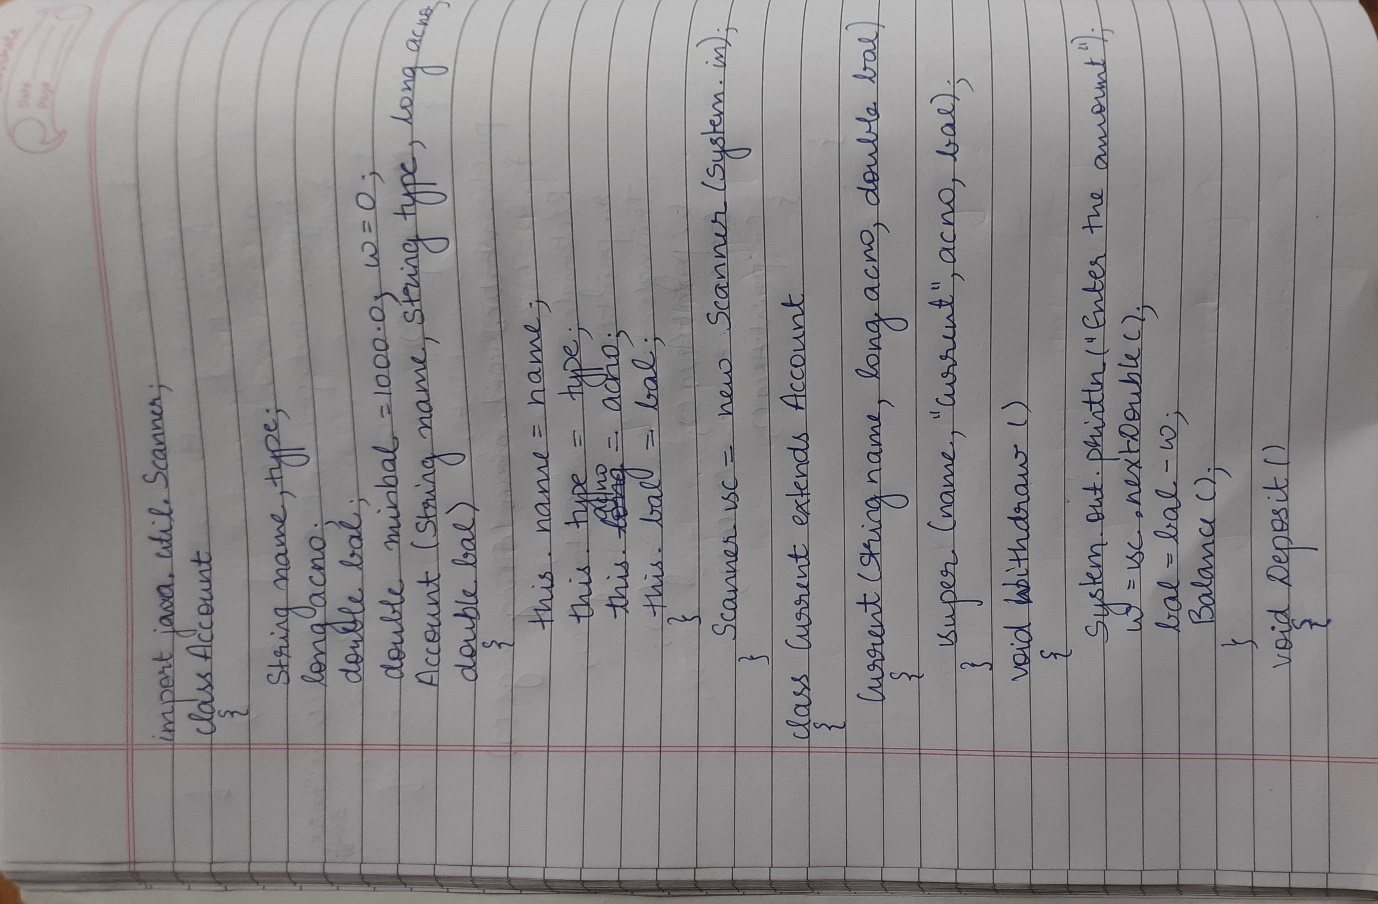 Date
Page
import java.util.Scanner;
class Account
{
String name, type;
long acno.
double bal;
double minbal = 1000.0, w = 0;
Account (String name, String type, long acno,
double bal)
{
this.name = name;
this.type = type;
this.acno = acno;
this.bal = bal;
}
Scanner sc = new Scanner (System.in);
}
class Current extends Account
{
Current (String name, long acno, double bal)
{
super (name, "Current", acno, bal);
}
void withdraw ()
{
System.out.println ("Enter the amount");
w = sc.nextDouble ();
bal = bal - w;
Balance ();
}
void Deposit ()
{